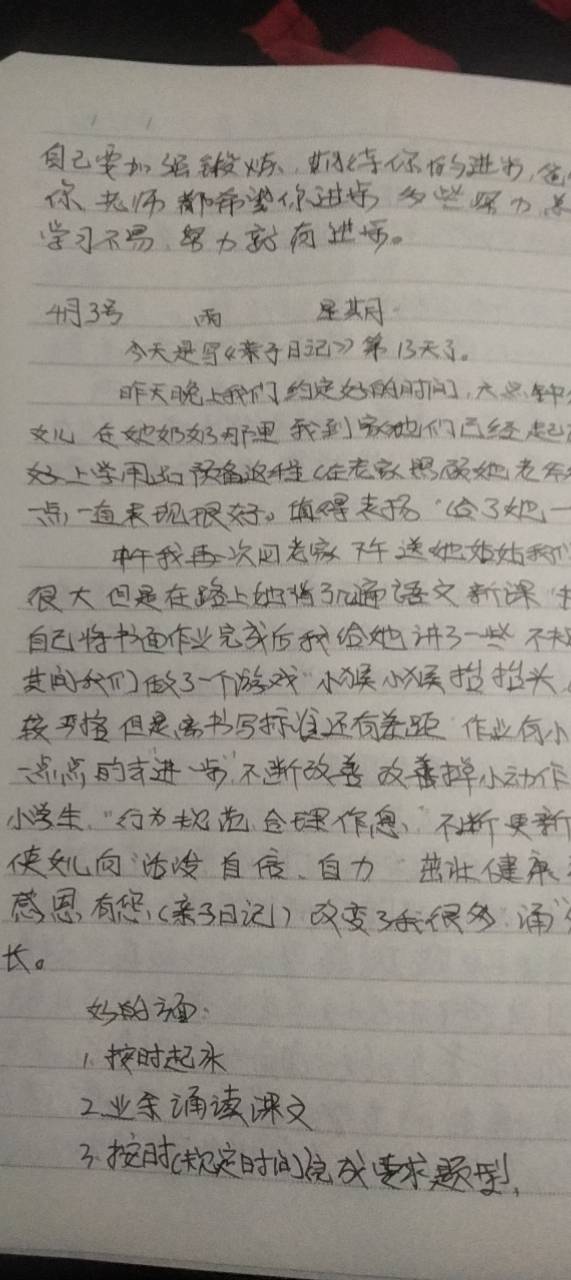 自己要加强锻炼、期待你的进步，
你 老师 都希望你进步 多些努力
学习不易，努力就有进步。
4月3号 雨 星期
今天是写《亲子日记》第13天了。
昨天晚上我们约定好的时间，六点钟
女儿 在她奶奶那里 我到家她们已经起
好上学用品 预备 这样（在老家照顾她老
一点，一直表现很好。值得表扬 给了她一
中午我再次回老家 下午 送她姑姑我们
很大 但是在路上她将了几遍语文新课
自己将书面作业完成后我给她讲了一些 不
其间我们做了一个游戏 “小猴小猴抬抬头
较 但是离书写标准还有差距 作业有小
一点点的求进一步 不断改善 改善掉小动作
小学生“行为规范 合理作息，”不断更新
使女儿向“活泼 自信、自力 茁壮健康
感恩有您，（亲子日记）改变了我很多，诵
长。
好的方面：
1. 按时起床
2 业余诵读课文
3. 按时（规定时间）完成要求题型，